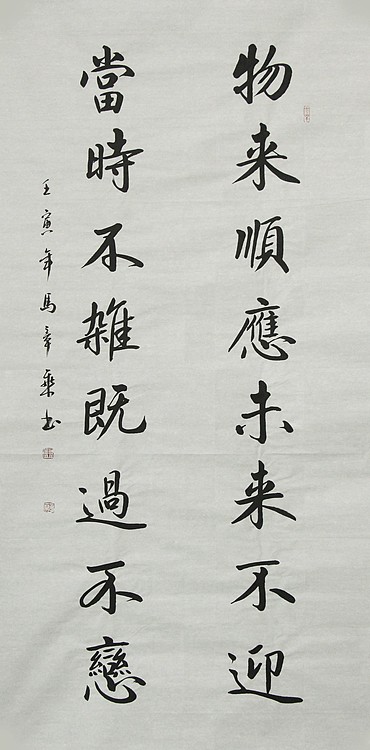 物来順應未来不迎
當時不雑既過不戀
壬寅年馬章乘书